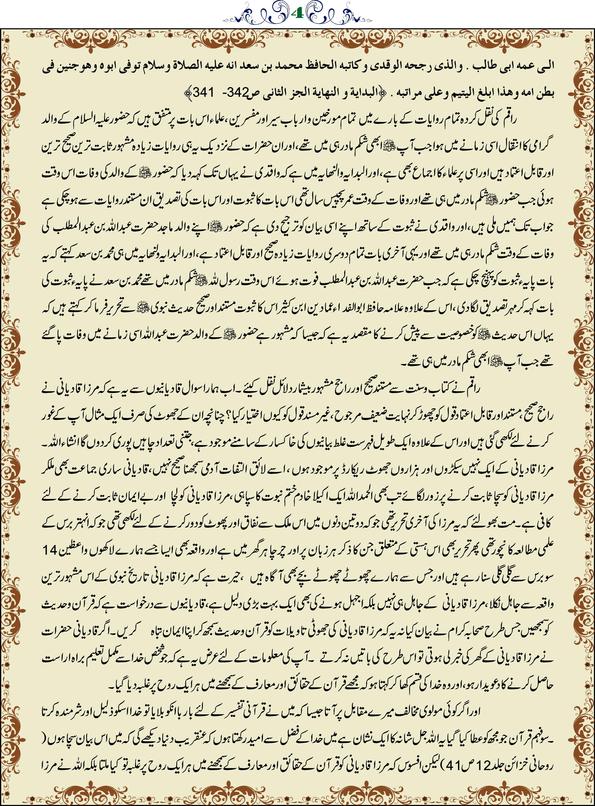 4
الی عمه ابی طالب . والذی رجحه الوقدی وکاتبه الحافظ محمد بن سعد انه علیه الصلاة وسلام توفی ابوه وهو جنین فی
بطن امه وهذا ابلغ الیتیم وعلی مراتبه . ﴿البدایة و النهایة الجز الثانی ص342- 341﴾
راقم کی نقل کردہ تمام روایات کے بارے میں تمام مورخین وارباب سیر اور مفسرین، علماء اس بات پر متفق ہیں کہ حضور علیہ السلام کے والد
گرامی کا انتقال اسی زمانے میں ہوا جب آپ ﷺ ابھی شکم مادر ہی میں تھے، اور ان حضرات کے نزدیک یہ ہی روایات زیادہ مشہور ثابت ترین صحیح ترین
اور قابل اعتماد ہیں اور اسی پر علماء کا اجماع بھی ہے، اور البدایہ والنھایہ میں ہے کہ واقدی نے یہاں تک کہہ دیا کہ حضور ﷺ کے والد کی وفات اس وقت
ہوئی جب حضور ﷺ شکم مادر ہی میں تھے اور وفات کے وقت عمر پچیس سال تھی اس بات کا ثبوت اور اس بات کی تصدیق ان مستند روایات سے ہو چکی ہے
جو اب تک ہمیں ملی ہیں، اور واقدی نے ثبوت کے ساتھ اپنے اسی بیان کو ترجیح دی ہے کہ حضور ﷺ اپنے والد ماجد حضرت عبداللہ بن عبدالمطلب کی
وفات کے وقت شکم مادر ہی میں تھے اور یہی آخری بات تمام دوسری روایات زیادہ صحیح اور قابل اعتماد ہے، اور البدایہ والنھایہ میں ہی محمد بن سعد کہتے کہ یہ
بات پایہ ثبوت کو پہنچ چکی ہے کہ جب حضرت عبداللہ بن عبدالمطلب فوت ہوئے اس وقت رسول اللہ ﷺ شکم مادر میں تھے محمد بن سعد نے پایہ ثبوت کی
بات کہہ کر مہر تصدیق لگا دی، اس کے علاوہ علامہ حافظ ابوالفداء عماد ین ابن کثیر اس کا ثبوت مستند اور صحیح حدیث نبوی ﷺ سے تحریر فرما کر کہتے ہیں کہ
یہاں اس حدیث ﷺ کو خصوصیت سے پیش کرنے کا مقصد یہ ہے کہ جیسا کہ مشہور ہے حضور ﷺ کے والد حضرت عبداللہ اسی زمانے میں وفات پا گئے
تھے جب آپ ﷺ ابھی شکم مادر میں ہی تھے۔
راقم نے کتاب وسنت سے مستند صحیح اور راجح مشہور بیشمار دلائل نقل کیئے۔ اب ہمارا سوال قادیانیوں سے یہ ہے کہ مرزا قادیانی نے
راجح صحیح، مستند اور قابل اعتماد قول کو چھوڑ کر نہایت ضعیف مرجوح، غیر مسند قول کو کیوں اختیار کیا؟ چنانچہ ان کے جھوٹ کی صرف ایک مثال آپ کے غور
کرنے لئے لکھی گئی ہیں اور اس کے علاوہ ایک طویل فہرست غلط بیانیوں کی خاکسار کے سامنے موجود ہے، جتنی تعداد چاہیں پوری کر دوں گا انشاء اللہ۔
مرزا قادیانی کے ایک نہیں سیکڑوں اور ہزاروں جھوٹ ریکارڈ پر موجود ہوں، اسے لائق التفات آدمی سمجھنا صحیح نہیں، قادیانی ساری جماعت بھی ملکر
مرزا قادیانی کو سچا ثابت کرنے پر زور لگائے تب بھی الحمد اللہ ایک اکیلا خادم ختم نبوت کا سپاہی، مرزا قادیانی کو لچا اور بے ایمان ثابت کرنے کے لئے
کافی ہے۔ مت بھولئے کہ یہ مرزا کی آخری تحریر تھی جو کہ دو تین دنوں میں اس ملک سے نفاق اور پھوٹ کو دور کرنے کے لئے لکھی تھی جو کہ انہتر برس کے
علمی مطالعہ کا نچوڑ تھی پھر تحریر بھی اس ہستی کے متعلق جن کا ذکر ہر زبان پر اور چرچا ہر گھر میں ہے اور واقعہ بھی ایسا جسے ہمارے لاکھوں واعظین 14
سو برس سے گلی گلی سنا رہے ہیں اور جس سے ہمارے چھوٹے چھوٹے بچے بھی آگاہ ہیں ، حیرت ہے کہ مرزا قادیانی تاریخ نبوی کے اس مشہور ترین
واقعہ سے جاہل نکلا، مرزا قادیانی کے جاہل ہی نہیں بلکہ اجہل ہونے کی بھی ایک بہت بڑی دلیل ہے، قادیانیوں سے درخواست ہے کہ قرآن وحدیث
کو سمجھیں جس طرح صحابہ کرام نے بیان کیا نہ یہ کہ مرزا قادیانی کی جھوٹی تاویلات کو قرآن وحدیث سمجھ کر اپنا ایمان تباہ کریں۔ اگر قادیانی حضرات
نے مرزا قادیانی کے گھر کی خبر لی ہوتی تو اس طرح کی باتیں نہ کرتے ۔ آپ کی معلومات کے لئے عرض یہ ہے کہ جو شخص خدا سے مکمل تعلیم براہ راست
حاصل کرنے کا دعویدار ہو، اور وہ خدا کی قسم کھا کر کہتا ہو کہ مجھے قرآن کے حقائق اور معارف کے سمجھنے میں ہر ایک روح پر غلبہ دیا گیا۔
اور اگر کوئی مولوی مخالف میرے مقابل پر آتا جیسا کہ میں نے قرآنی تفسیر کے لئے بار بار انکو بلایا تو خدا اسکو ذلیل اور شرمندہ کرتا
۔ سو فہم قرآن جو مجھ کو عطا کیا گیا یہ اللہ جل شانہ کا ایک نشان ہے میں خدا کے فضل سے امید رکھتا ہوں کہ عنقریب دنیا دیکھے گی کہ میں اس بیان سچا ہوں (
روحانی خزائن جلد 12 ص 41) لیکن افسوس کہ مرزا قادیانی کو قرآن کے حقائق اور معارف کے سمجھنے میں ہر ایک روح پر غلبہ تو کیا ملتا بلکہ اللہ نے مرزا